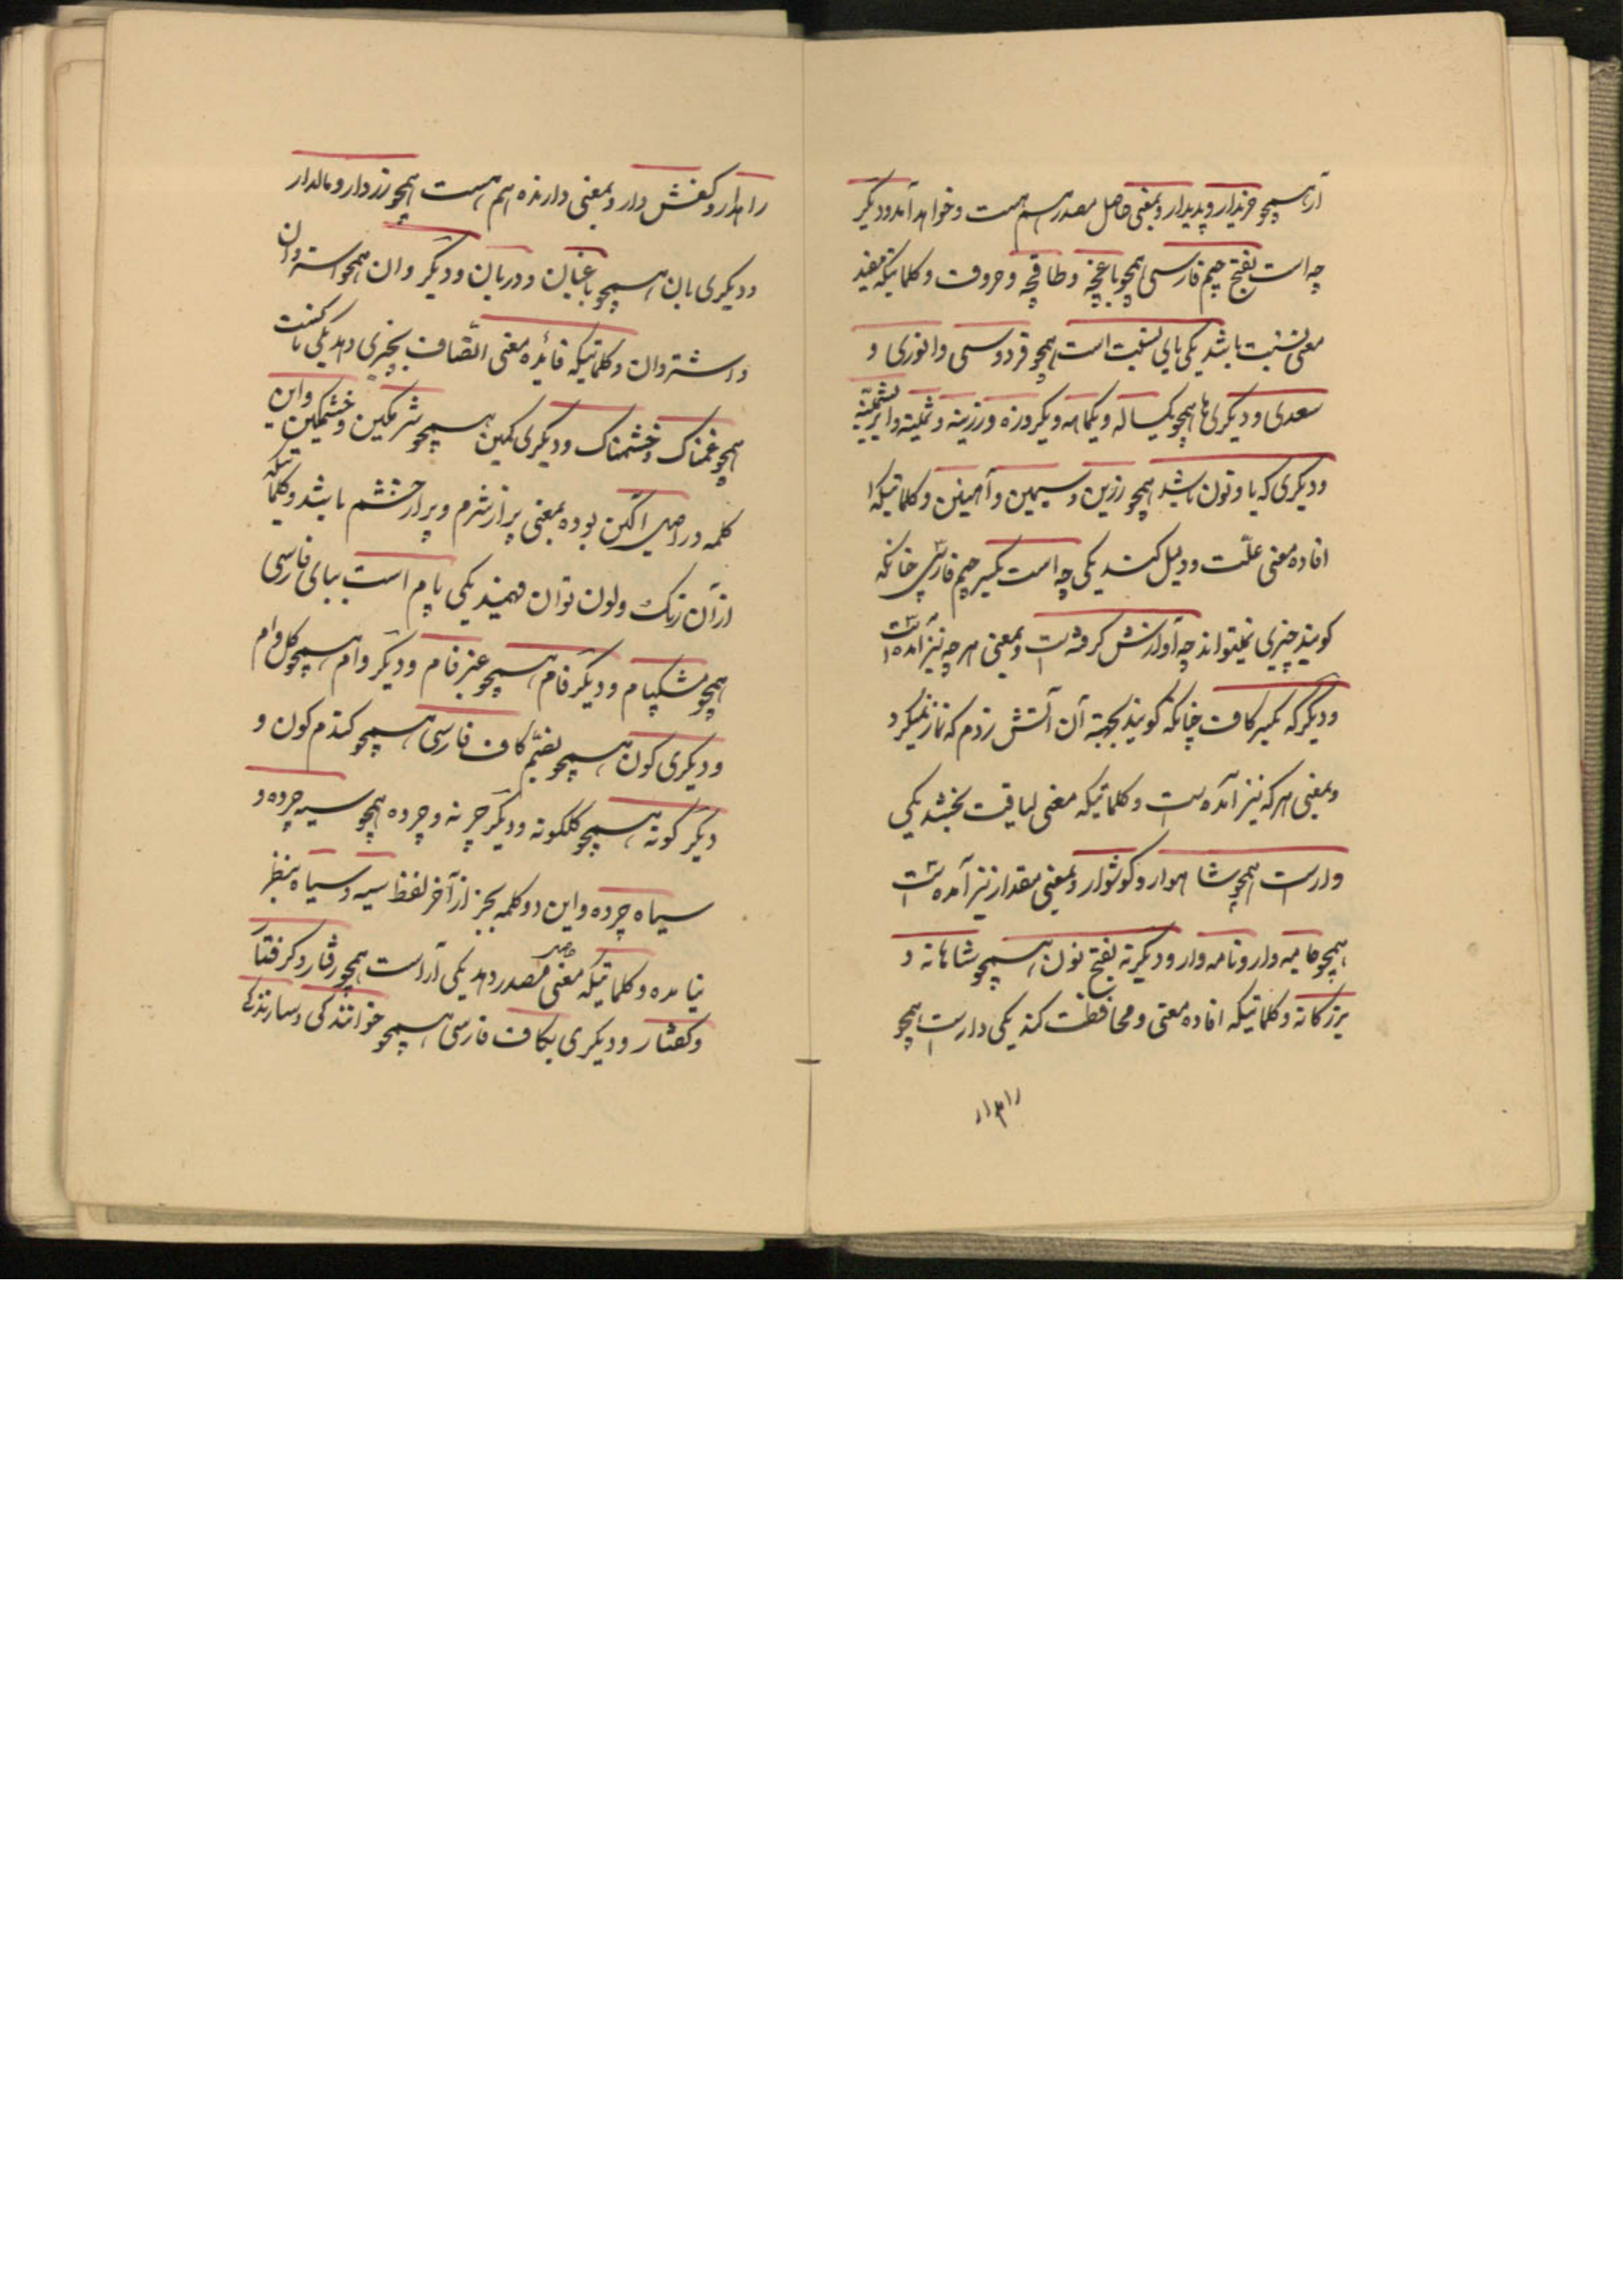 آر همچو خریدار و پدیدار و بمعنی حاصل مصدر هم هست و خواهد آمد و دیگر
چه است بفتح جیم فارسی همچو باغچه و طاقچه و حروف و کلماتیکه مفید
معنی نسبت باشد یکی یای نسبت است همچو فردوسی و انوری و
سعدی و دیگری ها همچو یکساله و یکماهه و یکروزه و زرینه و پشمینه
و دیگری که یا و نون باشد همچو زرین و سیمین و آهنین و کلماتیکه
افاده معنی علّت و دلیل کنند یکی چه است بکسر جیم فارسی چنانکه
گویند چیزی نمیتواند چه آوازش گرفته است و بمعنی هر چه نیز آمده است
و دیگر که بکسر کاف چنانکه گویند بجهة آن آتش زدم که نماز نمیکرد
و بمعنی هر که نیز آمده است و کلماتیکه معنی لیاقت بخشد یکی
وار است همچو شاهوار و گوشوار و بمعنی مقدار نیز آمده است
همچو جامه وار و نامه وار و دیگر نه بفتح نون همچو شاهانه و
بزرگانه و کلماتیکه افاده معنی و محافظت کند یکی دار است همچو
راهدار
راهدار و کفش دار و بمعنی دارنده هم هست همچو زردار و مالدار
و دیگری بان همچو باغبان و دربان و دیگر وان همچو استروان
و اشتروان و کلماتیکه فائده معنی اتّصاف بچیزی دهد یکی ناکست
همچو غمناک و خشمناک و دیگری گین همچو شرمگین و خشمگین و این
کلمه در اصل اگین بوده بمعنی پر از شرم و پر از خشم باشد و کلماتیکه
از آن رنگ و لون توان فهمید یکی پام است ببای فارسی
همچو مشکپام و دیگر فام همچو عنبر فام و دیگر وام همچو گل وام
و دیگری گون همچو بضمّ کاف فارسی همچو گندم گون و
دیگر گونه همچو گلگونه و دیگر چرنه و چرده همچو سیه چرده و
سیاه چرده و این دو کلمه بجز از آخر لفظ سیه و سیاه بنظر
نیامده و کلماتیکه معنی حاصل مصدر دهد یکی آر است همچو رفتار و گرفتار
و گفتار و دیگری بکاف فارسی همچو خوانندگی و سازندگی